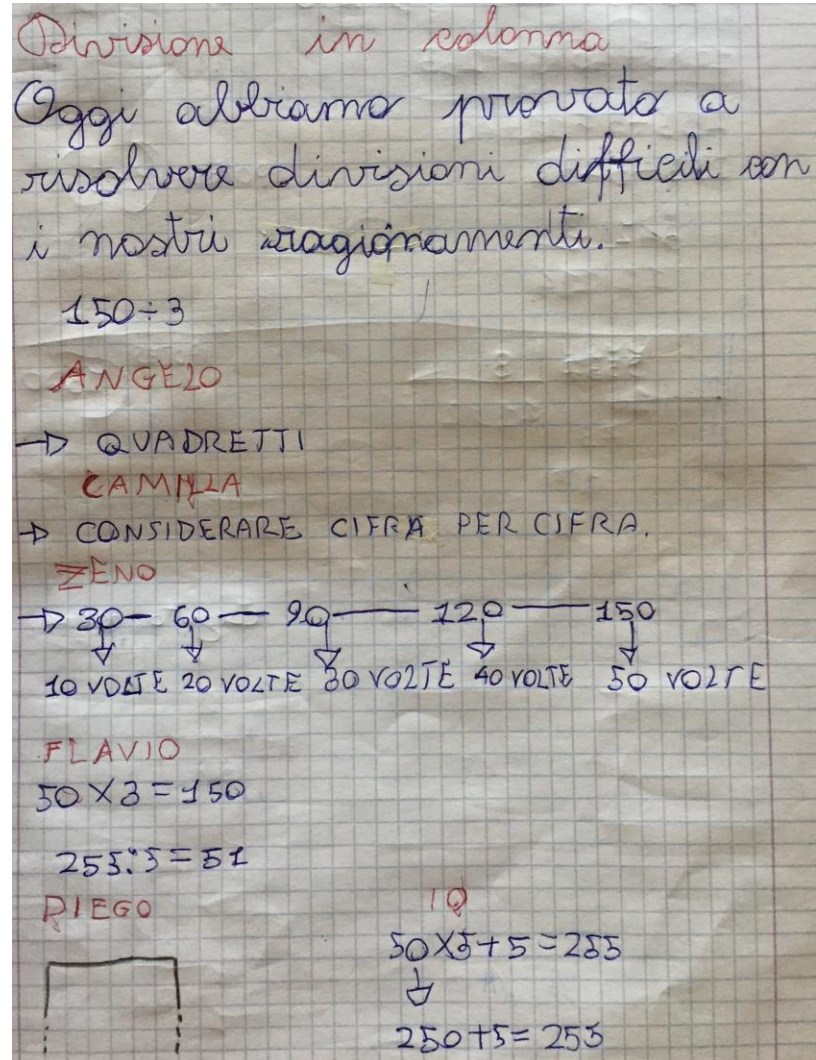 Divisione in colonna
Oggi abbiamo provato a
risolvere divisioni difficili con
i nostri ragionamenti.
150÷3
ANGELO
→ QUADRETTI
CAMILLA
→ CONSIDERARE CIFRA PER CIFRA.
ZENO
→ 30 — 60 — 90 — 120 — 150
10 VOLTE 20 VOLTE 30 VOLTE 40 VOLTE 50 VOLTE
FLAVIO
50 X 3 = 150
255:5 = 51
DIEGO
IO
50X5+5=255
250+5=255